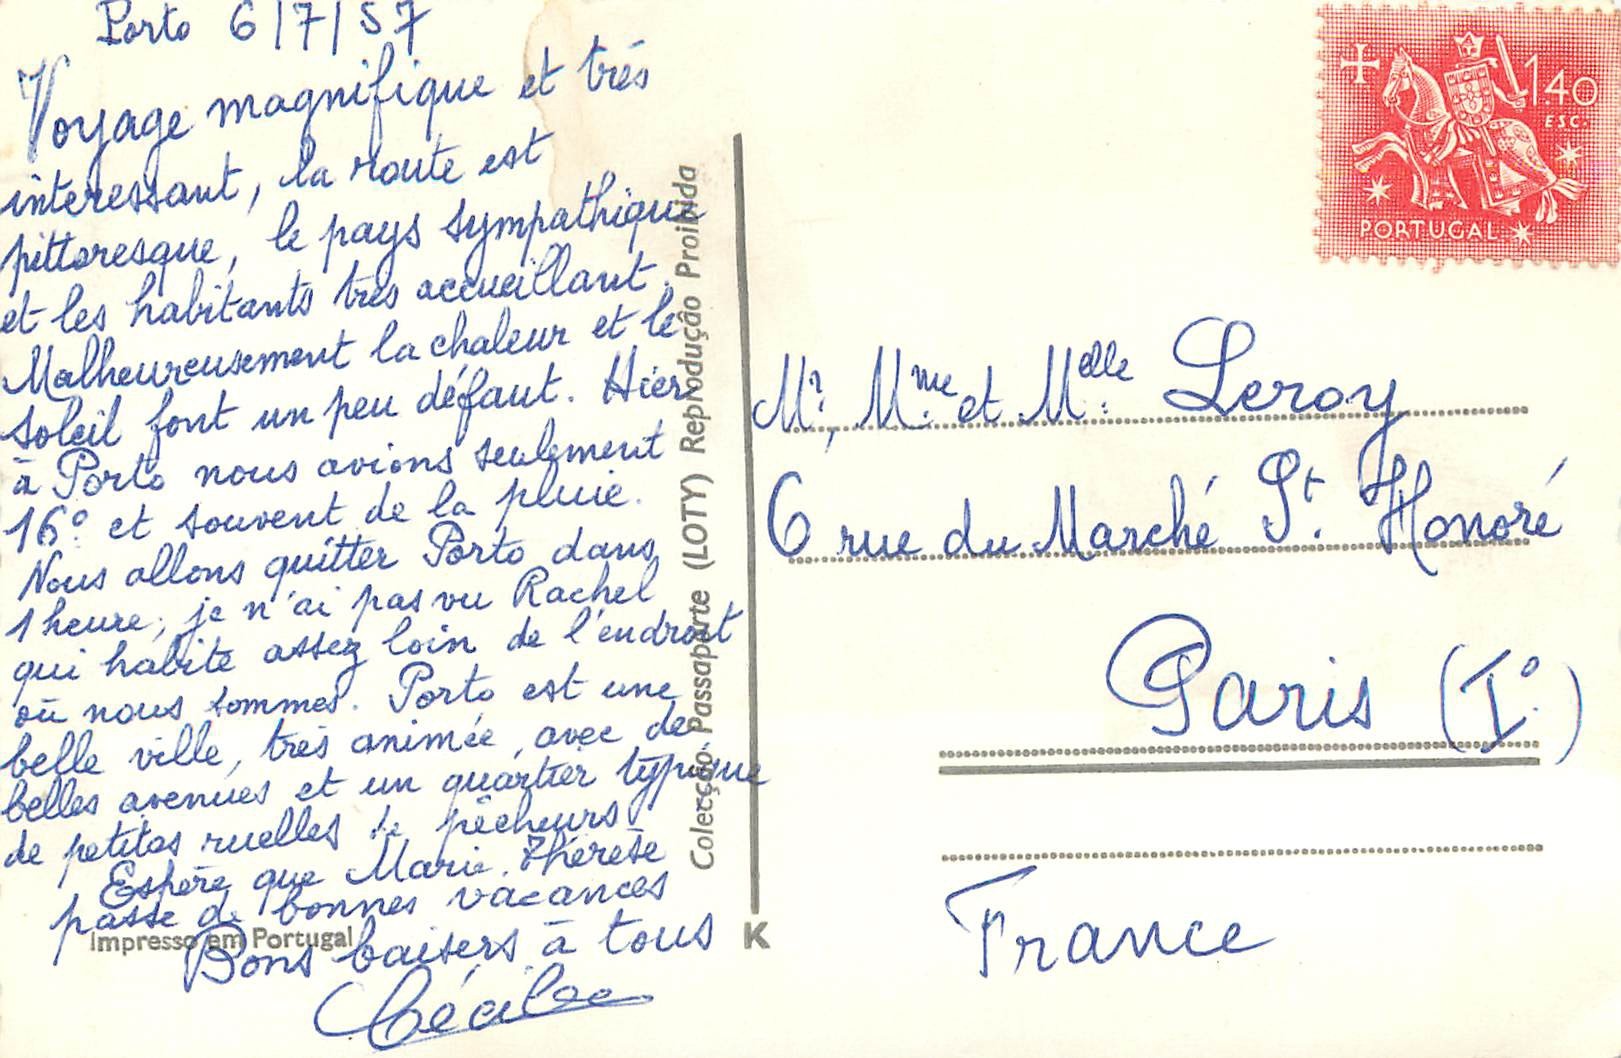 Porto 6/7/57
Voyage magnifique et très
interessant, la route est
pittoresque, le pays sympathique
et les habitants très accueillant.
Malheureusement la chaleur et le
soleil font un peu défaut. Hier
à Porto nous avions seulement
16° et souvent de la pluie.
Nous allons quitter Porto dans
1 heure, je n'ai pas vu Rachel
qui habite assez loin de l'endroit
où nous sommes. Porto est une
belle ville, très animée, avec de
belles avenues et un quartier typique
de petites ruelles de pêcheurs
Espère que Marie Thérèse
passe de bonnes vacances
Bons baisers à tous
Cécile
Impresso em Portugal
Colecção Passaporte (LOTY) Reprodução Proibida
K
1$40
ESC.
PORTUGAL
Mr, Mme et Melle Leroy
6 rue du Marché St. Honoré
Paris (I°)
France